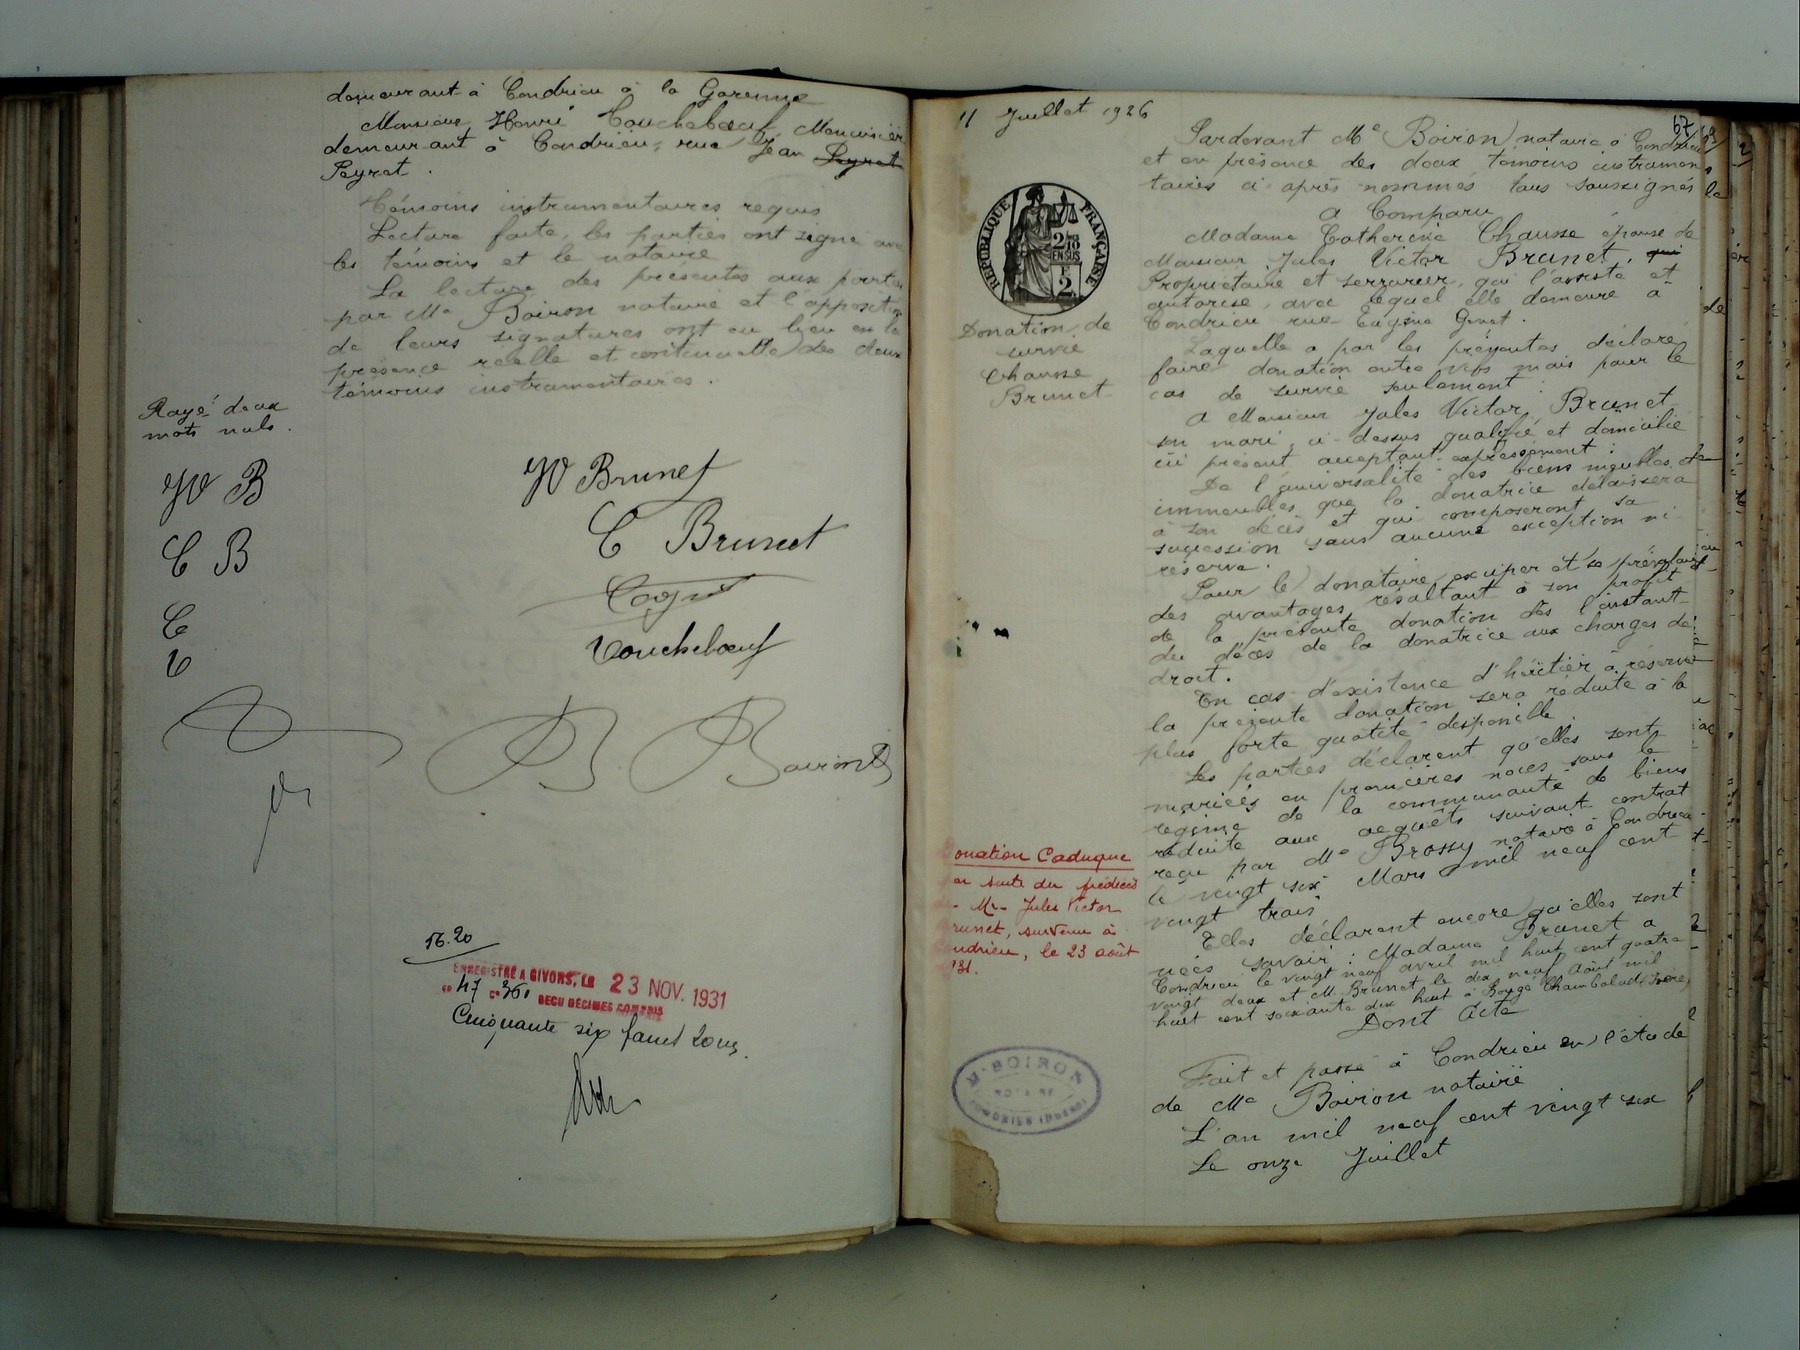 demeurant à Condrieu à la Garenne
Monsieur Henri Couchebœuf, Menuisier
demeurant à Condrieu, rue Jean Peyret
Peyret.
Témoins instrumentaires requis
Lecture faite, les parties ont signé avec
les témoins et le notaire
La lecture des présentes aux parties
par Me Boiron notaire et l'apposition
de leurs signatures ont eu lieu en la
présence réelle et continuelle des deux
témoins instrumentaires.
Rayé deux
mots nuls.
JV B
C B
C
JV Brunet
C Brunet
Couchebœuf
Boiron
56.20
ENREGISTRÉ A GIVORS, LE 23 NOV. 1931
Fo 47 Co 360 RECU DÉCIMES COMPRIS
Cinquante six francs 20 cs.
11 Juillet 1926
67
RÉPUBLIQUE FRANÇAISE
2/10
EN SUS
2F
Donation de
survie
Chausse
Brunet
Pardevant Me Boiron notaire à Condrieu
et en présence des deux témoins instrumen
taires ci-après nommés tous soussignés
a Comparu
Madame Catherine Chausse épouse de
Monsieur Jules Victor Brunet, qui
Propriétaire et serrurier, qui l'assiste et
autorise, avec lequel elle demeure à
Condrieu rue Eugène Ginet.
Laquelle a par les présentes déclaré
faire donation entre vifs mais pour le
cas de survie seulement:
A Monsieur Jules Victor Brunet
son mari, ci-dessus qualifié et domicilié
ici présent acceptant expressément:
De l'universalité des biens meubles et
immeubles que la donatrice délaissera
à son décès et qui composeront sa
sucession sans aucune exception ni
réserve.
Pour le donataire exciper et se prévaloir
des avantages résultant à son profit
de la présente donation dès l'instant
du décès de la donatrice aux charges de
droit.
En cas d'existence d'héritier à réserve
la présente donation sera réduite à la
plus forte quotité disponible.
Les parties déclarent qu'elles sont
mariées en premières noces sous le
régime de la communauté de biens
réduite aux acquêts suivant contrat
reçu par Me Brossy notaire à Condrieu
le vingt six Mars mil neuf cent
vingt trois
Elles déclarent encore qu'elles sont
nées savoir: Madame Brunet à
Condrieu le vingt neuf avril mil huit cent quatre
vingt deux et M. Brunet le dix neuf Août mil
huit cent soixante dix huit à Bougé Chambalud (Isère)
Dont Acte
Fait et passé à Condrieu en l'étude
de Me Boiron notaire
L'an mil neuf cent vingt six
Le onze Juillet
Donation Caduque
par suite du prédécès
de Mr Jules Victor
Brunet, survenu à
Condrieu, le 23 août
1931.
Me BOIRON
NOTAIRE
CONDRIEU (RHONE)